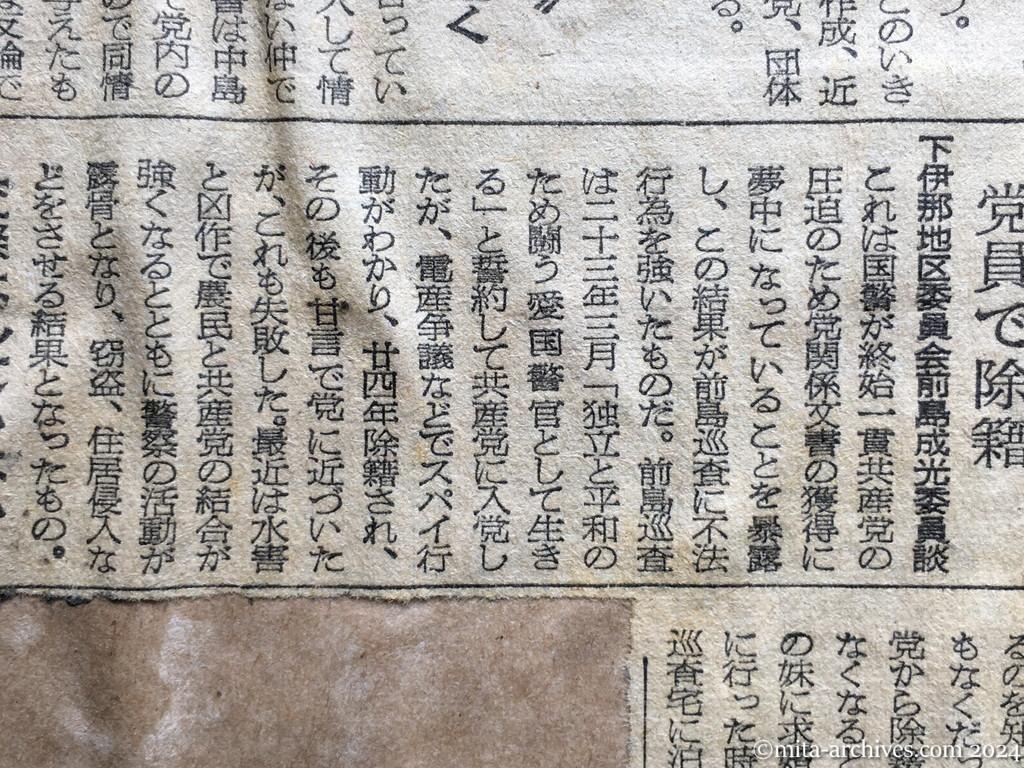 。
このいき
作成、近
党、団体
る。
く
合ってい
入して情
ない仲で
書は中島
て党内の
ので同情
与えたも
な文倫で
党員で除籍
下伊那地区委員会前島成光委員談
これは国警が終始一貫共産党の
圧迫のため党関係文書の獲得に
夢中になっていることを暴露
し、この結果が前島巡査に不法
行為を強いたものだ。前島巡査
は二十三年三月「独立と平和の
ため闘う愛国警官として生き
る」と誓約して共産党に入党し
たが、電産争議などでスパイ行
動がわかり、廿四年除籍され、
その後も甘言で党に近づいた
が、これも失敗した。最近は水害
と凶作で農民と共産党の結合が
強くなるとともに警察の活動が
露骨となり、窃盗、住居侵入な
どをさせる結果となったもの。
るのを知
もなくだっ
党から除籍
なくなると
の妹に求婚
に行った時
巡査宅に泊
©mita-archives.com 2024